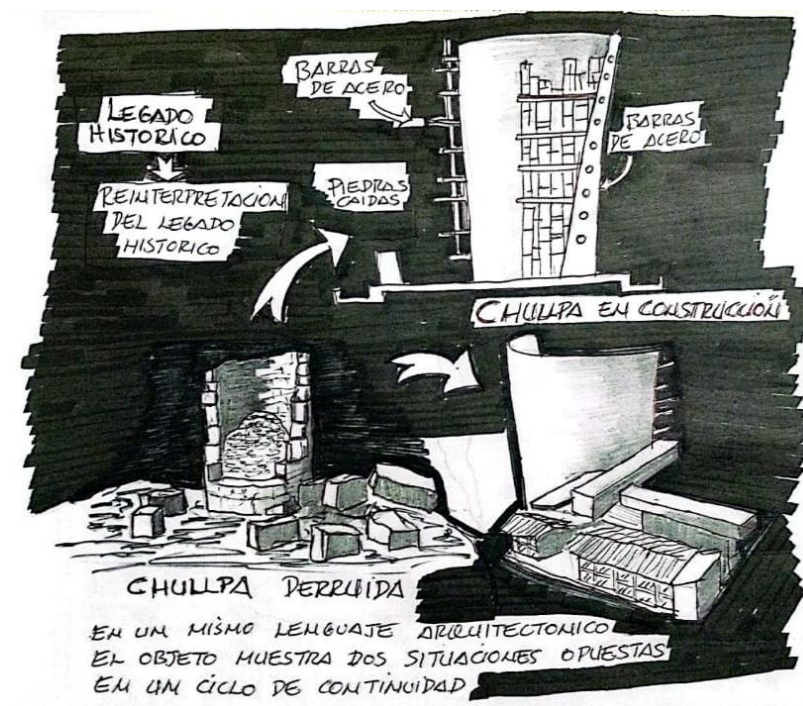 LEGADO
HISTORICO
REINTERPRETACION
DEL LEGADO
HISTORICO
BARRAS
DE ACERO
PIEDRAS
CAIDAS
BARRAS
DE ACERO
CHULLPA EN CONSTRUCCIÓN
CHULLPA DERRUIDA
EN UN MISMO LENGUAJE ARQUITECTONICO
EL OBJETO MUESTRA DOS SITUACIONES OPUESTAS
EN UN CICLO DE CONTINUIDAD